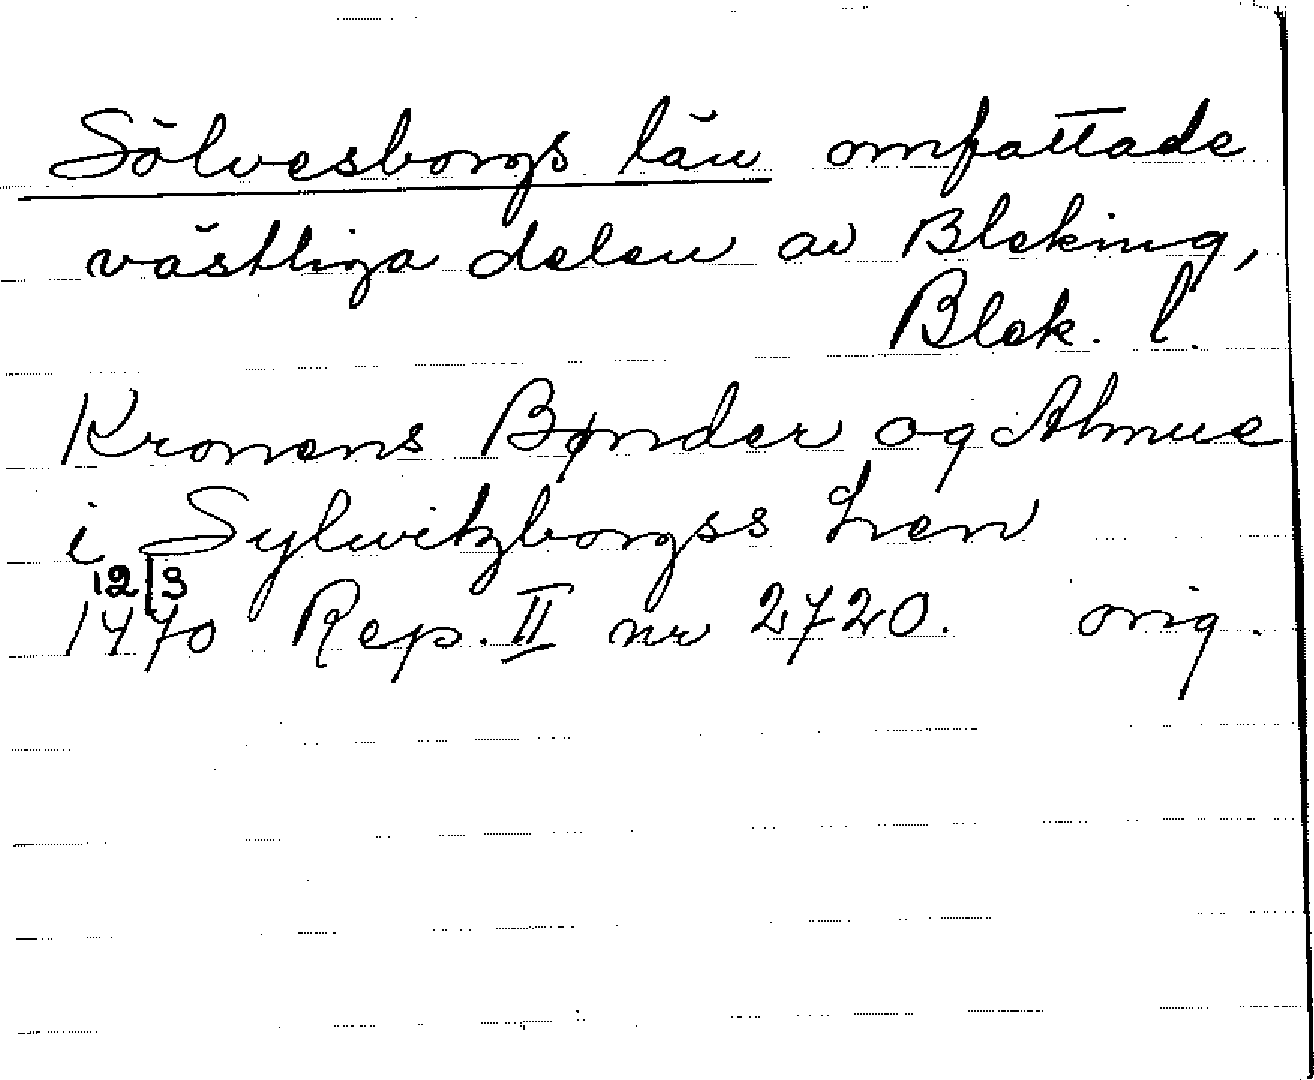 Sölvesborgs län omfattade
västliga delen av Bleking,
Blek. l.
Kronens Bønder og Almue
i Sylvitzborgss Len
12/3
1470 Rep. II nr 2720. orig.